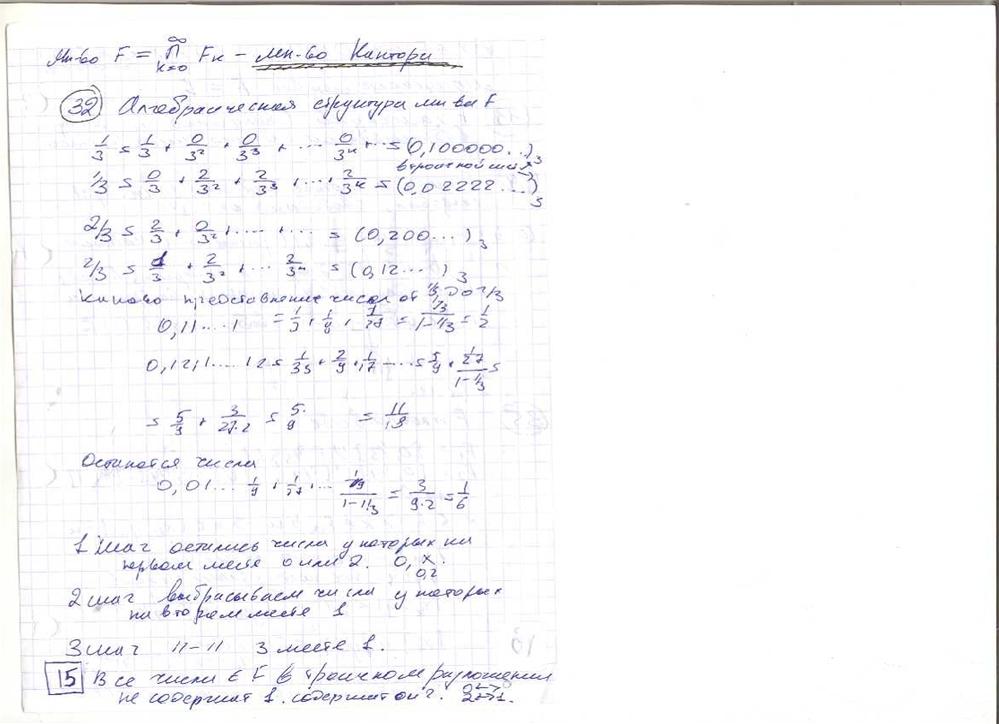 Мн-во F = ∞ ∩ k=0 Fк – мн-во Кантора
32 Алгебраическая структура мн-ва F
1/3 = 1/3 + 0/3² + 0/3³ + ... 0/3ᵏ + ... = (0,100000...)₃
в троичной
1/3 = 0/3 + 2/3² + 2/3³ + ... + 2/3ᵏ = (0,02222...)₃
2/3 = 2/3 + 0/3² + ... + ... = (0,200...)₃
2/3 = 1/3 + 2/3² + ... 2/3ⁿ = (0,12...)₃
Каково предоставление чисел от 1/3 до 2/3
0,11....1 = 1/3 + 1/9 + 1/27 = (1/3)/(1-1/3) = 1/2
0,121,1.... 12 = + 2/9 + ... = 5/9 + (1/27)/(1-1/3) =
= 5/9 + 3/27·2 = 5/9 = 11/
Остаются числа
0,01... 1/9 + 1/27 + ... (1/9)/(1-1/3) = 3/9·2 = 1/6
1 шаг остались числа у которых на
первом месте 0 или 2. 0, x.
0,2
2 шаг выбрасываем числа у которых
на втором месте 1
3 шаг 11-11 3 месте 1.
15 Все числа ∈ F в троичном разложении
не содержат 1. содержат 0 и 2. 0↔0 2↔1.